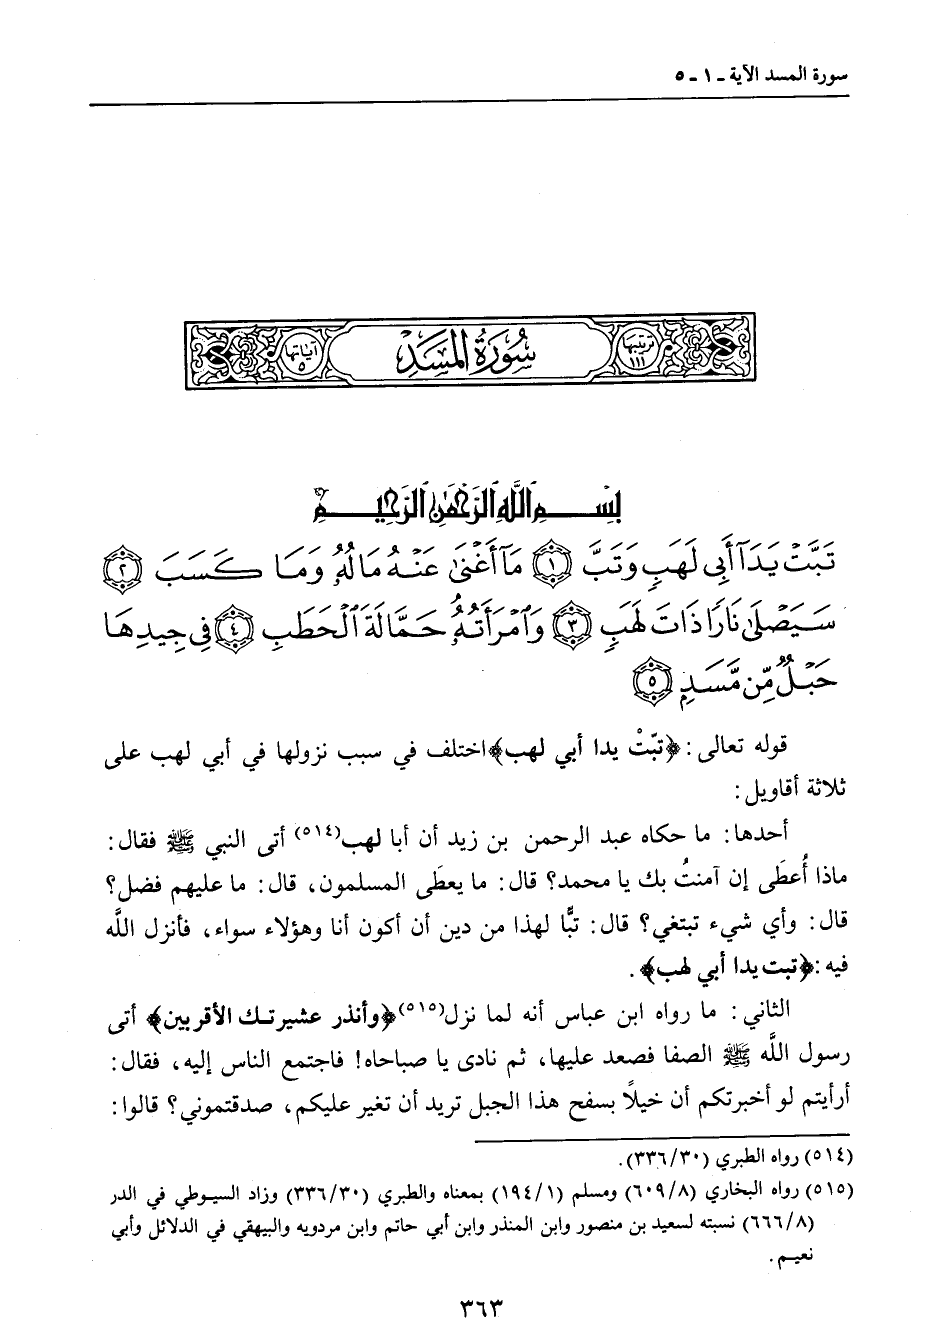 سورة المسد الآية ـ ١ ـ ٥
ترتيبها ١١١ سُورَةُ المَسَدِ آياتها ٥
بِسْمِ اللَّهِ الرَّحْمَنِ الرَّحِيمِ
تَبَّتْ يَدَآ أَبِى لَهَبٍ وَتَبَّ ﴿١﴾ مَآ أَغْنَىٰ عَنْهُ مَالُهُۥ وَمَا كَسَبَ ﴿٢﴾
سَيَصْلَىٰ نَارًا ذَاتَ لَهَبٍ ﴿٣﴾ وَٱمْرَأَتُهُۥ حَمَّالَةَ ٱلْحَطَبِ ﴿٤﴾ فِى جِيدِهَا
حَبْلٌ مِّن مَّسَدٍ ﴿٥﴾
قوله تعالى: ﴿تبّتْ يدا أبي لهب﴾ اختلف في سبب نزولها في أبي لهب على
ثلاثة أقاويل:
أحدها: ما حكاه عبد الرحمن بن زيد أن أبا لهب(٥١٤) أتى النبي ﷺ فقال:
ماذا أُعطَى إن آمنتُ بك يا محمد؟ قال: ما يعطَى المسلمون، قال: ما عليهم فضل؟
قال: وأي شيء تبتغي؟ قال: تبًّا لهذا من دين أن أكون أنا وهؤلاء سواء، فأنزل اللَّه
فيه: ﴿تبت يدا أبي لهب﴾.
الثاني: ما رواه ابن عباس أنه لما نزل(٥١٥) ﴿وأنذر عشيرتك الأقربين﴾ أتى
رسول اللَّه ﷺ الصفا فصعد عليها، ثم نادى يا صباحاه! فاجتمع الناس إليه، فقال:
أرأيتم لو أخبرتكم أن خيلًا بسفح هذا الجبل تريد أن تغير عليكم، صدقتموني؟ قالوا:
(٥١٤) رواه الطبري (٣٣٦/٣٠).
(٥١٥) رواه البخاري (٦٠٩/٨) ومسلم (١٩٤/١) بمعناه والطبري (٣٣٦/٣٠) وزاد السيوطي في الدر
(٦٦٦/٨) نسبته لسعيد بن منصور وابن المنذر وابن أبي حاتم وابن مردويه والبيهقي في الدلائل وأبي
نعيم.
٣٦٣